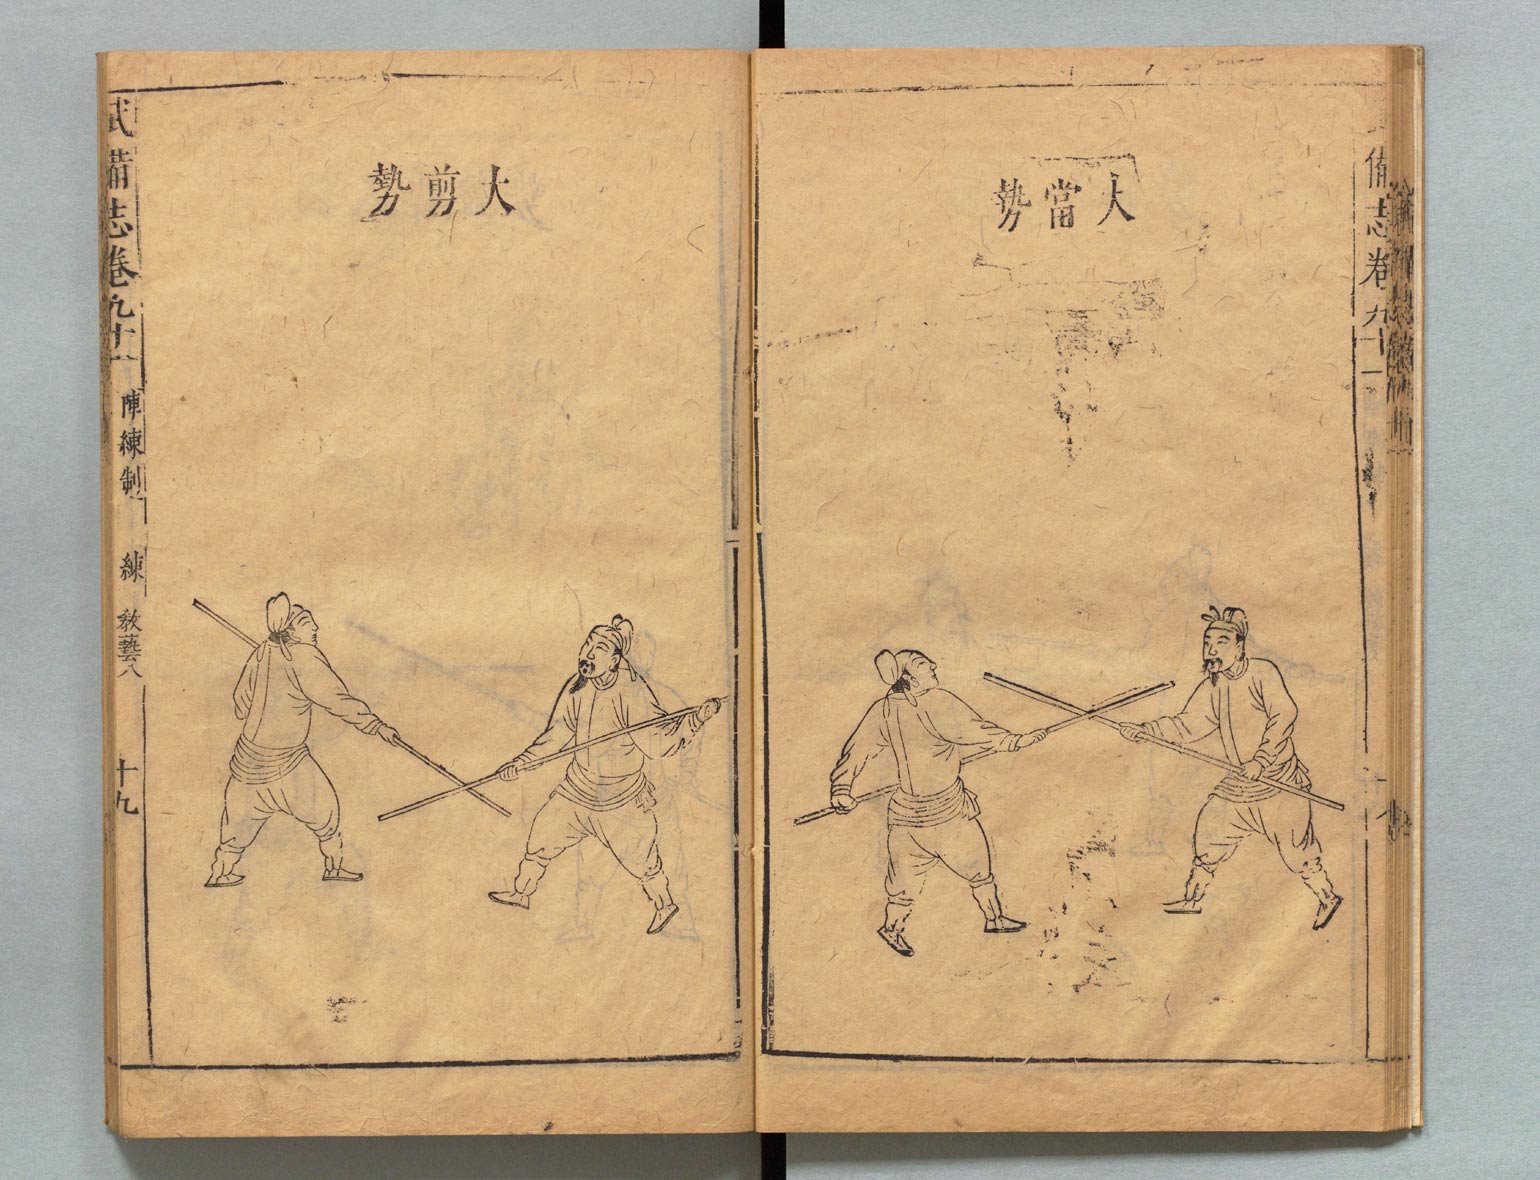 備志卷九十一
大當勢
大剪勢
武備志卷九十一 陣練制 練 教藝八 十九